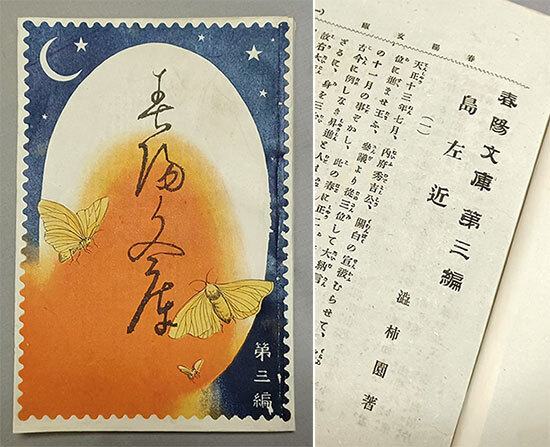 春陽文庫
第三編
春陽文庫
春陽文庫第三編
島左近
澁柿園著
(一)
天正十三年七月、内府秀吉公、關白の宣被むらせて、
位に進ませ玉ふ、參議より從三位して大納言
の十一月の事ぞかし、此の春に正二
古今に例しなき昇進と人
ざるに、身を三
故右大